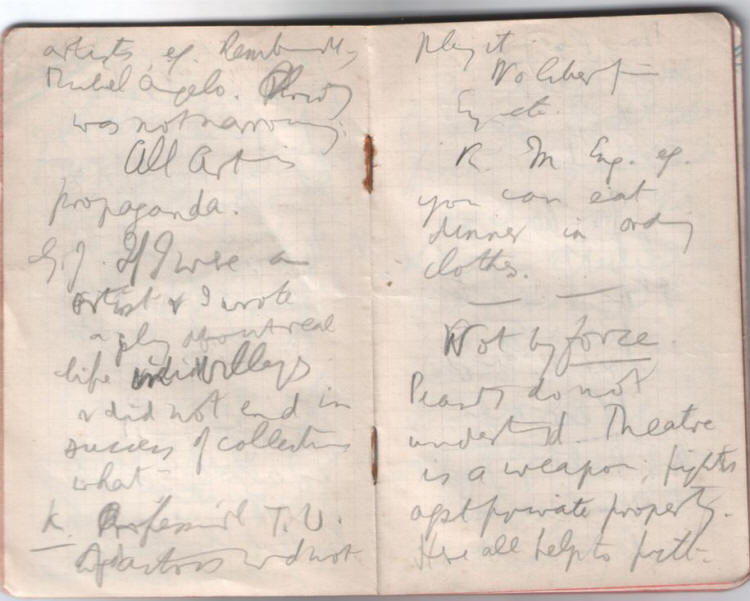 artists eg. Rembrandt,
Michel Angelo.
was not narrow.
All Art is
propaganda.
G.J. If I were an
artist & I wrote
a play about real
life in villages
& did not end in
success of collective
what
K. Professional T.U.
of actors wd not
play it.
No liberty in
Eng etc.
R. In Eng. eg.
you can eat
dinner in ordry
clothes.
Not by force.
Peasants do not
understand. Theatre
is a weapon, fights
agst private property.
Here all help to